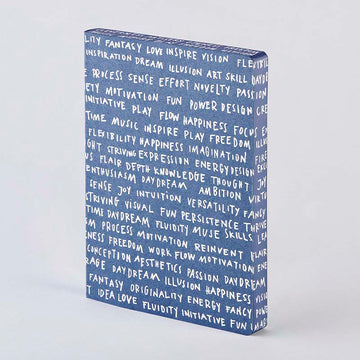 LITY FANTASY LOVE INSPIRE VISION FLEXIBIL
INSPIRATION DREAM ILLUSION ART SKILL DAYDR
E PROCESS SENSE EFFORT NOVELTY PASSION
ETY MOTIVATION FUN POWER DESIGN CRE
INITIATIVE PLAY FLOW HAPPINESS FOCUS E
TIME MUSIC INSPIRE PLAY FREEDOM ILLUS
FLEXIBILITY HAPPINESS IMAGINATION FIRE
GHT STRIVING EXPRESSION ENERGY DESIGN
US FLAIR DEPTH KNOWLEDGE THOUGHT JOY
ENTHUSIASM DAYDREAM AMBITION VIRTU
SENSE JOY INTUITION VERSATILITY FANCY
STRIVING VISUAL FUN PERSISTENCE THRIVE
TIME DAYDREAM FLUIDITY MUSE SKILLS
SM PROCESS MOTIVATION REINVENT FLAIR
NESS FREEDOM WORK FLOW MOTIVATION
CONCEPTION AESTHETICS PASSION DAYDREAM
RAGE DAYDREAM ILLUSION HAPPINESS
FANTASY ORIGINALITY ENERGY FANCY POWE
T IDEA LOVE FLUIDITY INITIATIVE FUN IMAG